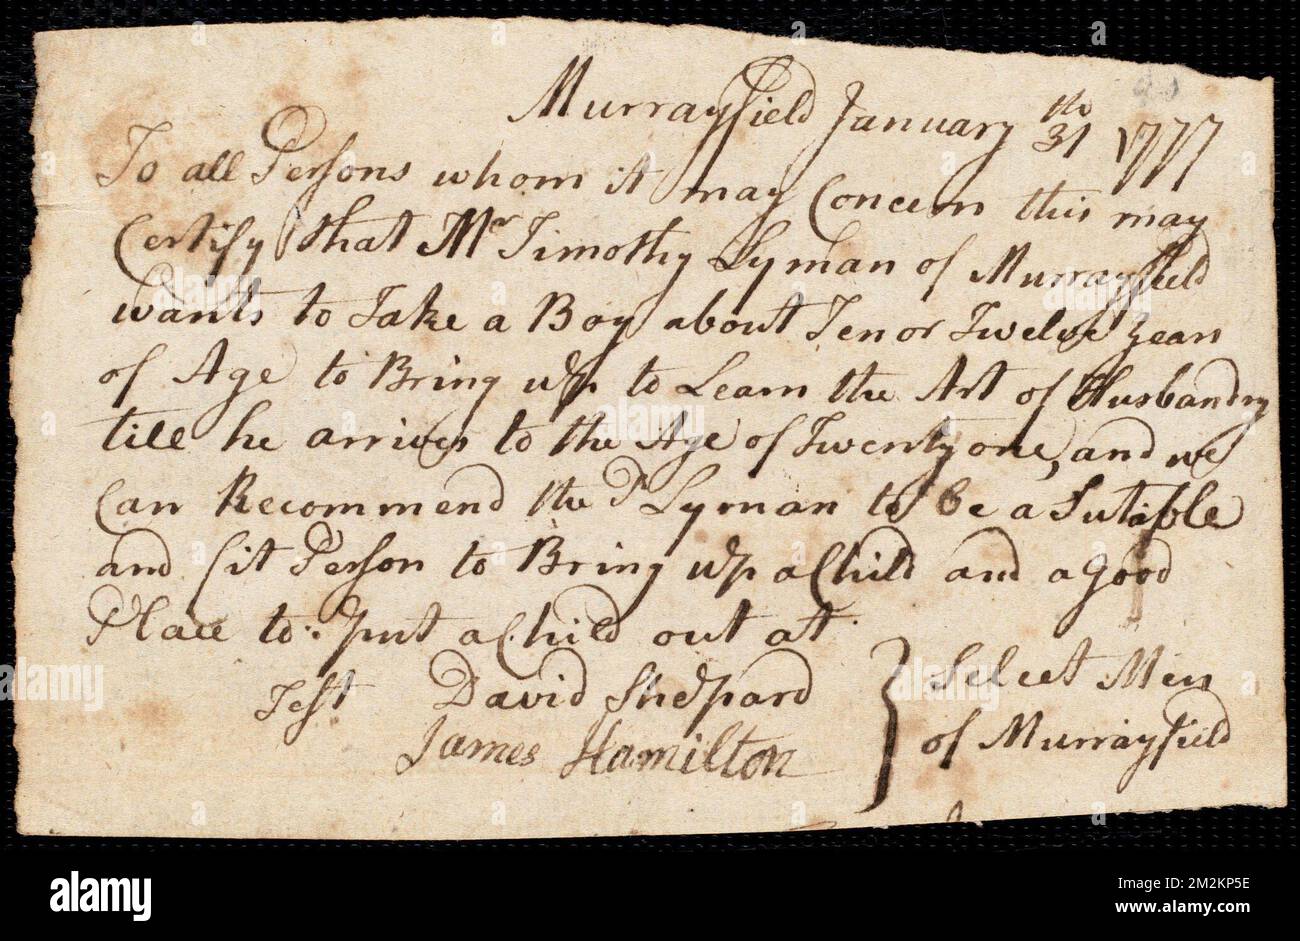 Murrayfield January 31 th 1777
To all Persons whom it may Concern this may
Certify that Mr Timothy Lyman of Murrayfield
wants to Take a Boy about Ten or Twelve years
of Age to Bring up to Learn the Art of Husbandry
till he arrives to the Age of Twenty one, and we
Can Recommend the Sd Lyman to be a Sutable
and fit Person to Bring up a Child and a good
Place to put a Child out at
Test David Shepard } Select Men
James Hamilton of Murrayfield
alamy
Image ID: 2M2KP5E
www.alamy.com